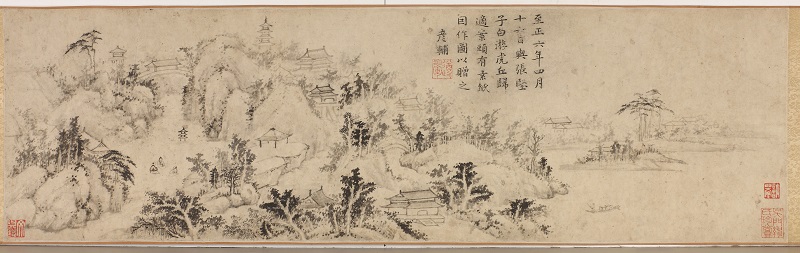 至正六年四月
十六日與張堅
子白游虎丘歸
適案頭有素紙
因作圖以贈之
彥輔